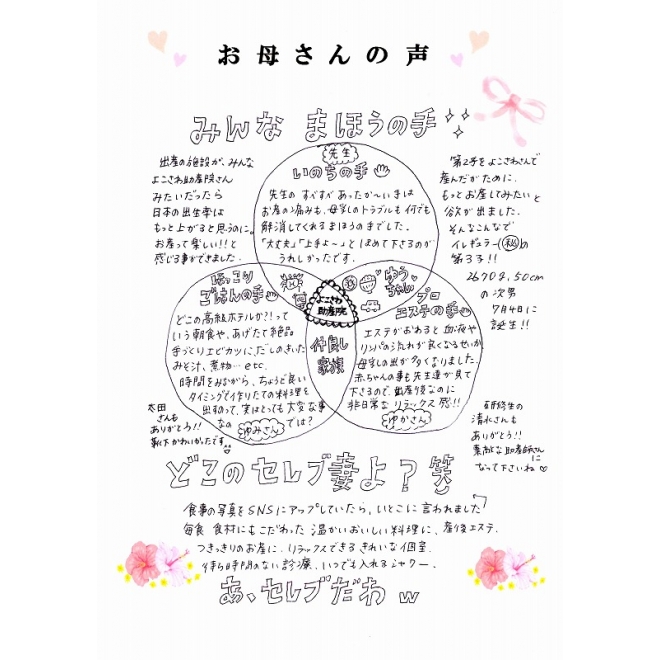 お母さんの声
みんな まほうの手
先生
いのちの手
先生の すぎすぎ あったか〜い手は
お産の痛みも、母乳のトラブルも何でも
解消してくれるまほうの手でした。
「大丈夫」「上手よ〜」と ほめて下さるのが
うれしかったです。
出産の施設が、みんな
よこさわ助産院さん
みたいだったら
日本の出生率は
もっと上がると思うのに。
お産って楽しい!!と
感じる事ができました。
第2子をよこさわさんで
産んだがために、
もっとお産してみたいと
欲が出ました。
そんなこんなで
イレギュラー(㊙)の
第3子!!
2670g,50cm
の次男
7月4日に
誕生!!
ほっこり
ごはんの手
どこの高級ホテルか?!って
いう朝食や、あげたて絶品
手づくりエビカツに、だしのきいた
みそ汁、煮物…etc.
時間をみながら、ちょうど良い
タイミングで作りたての料理を
出すのって、実はとても大変な事
なのでは?
ゆみさん
よこさわ
助産院
仲良し
家族
ゆう
ちゃん
プロ
エステの手
エステがおわると血液や
リンパの流れが良くなるせいか
母乳の出が多くなりました。
赤ちゃんの事も先生達が見て
下さるので、出産後なのに
非日常なリラックス感!!
ゆかさん
太田
さんも
ありがとう!!
靴下かわいかったです
研修生の
清水さんも
ありがとう!!
素敵な助産師さんに
なって下さいね
どこのセレブ妻よ?笑
食事の写真をSNSにアップしていたら、いとこに言われました
毎食 食材にもこだわった 温かいおいしい料理に、産後エステ、
つきっきりのお産に、リラックスできる きれいな個室、
待ち時間のない診療、いつでも入れるシャワー、
あ、セレブだわ w